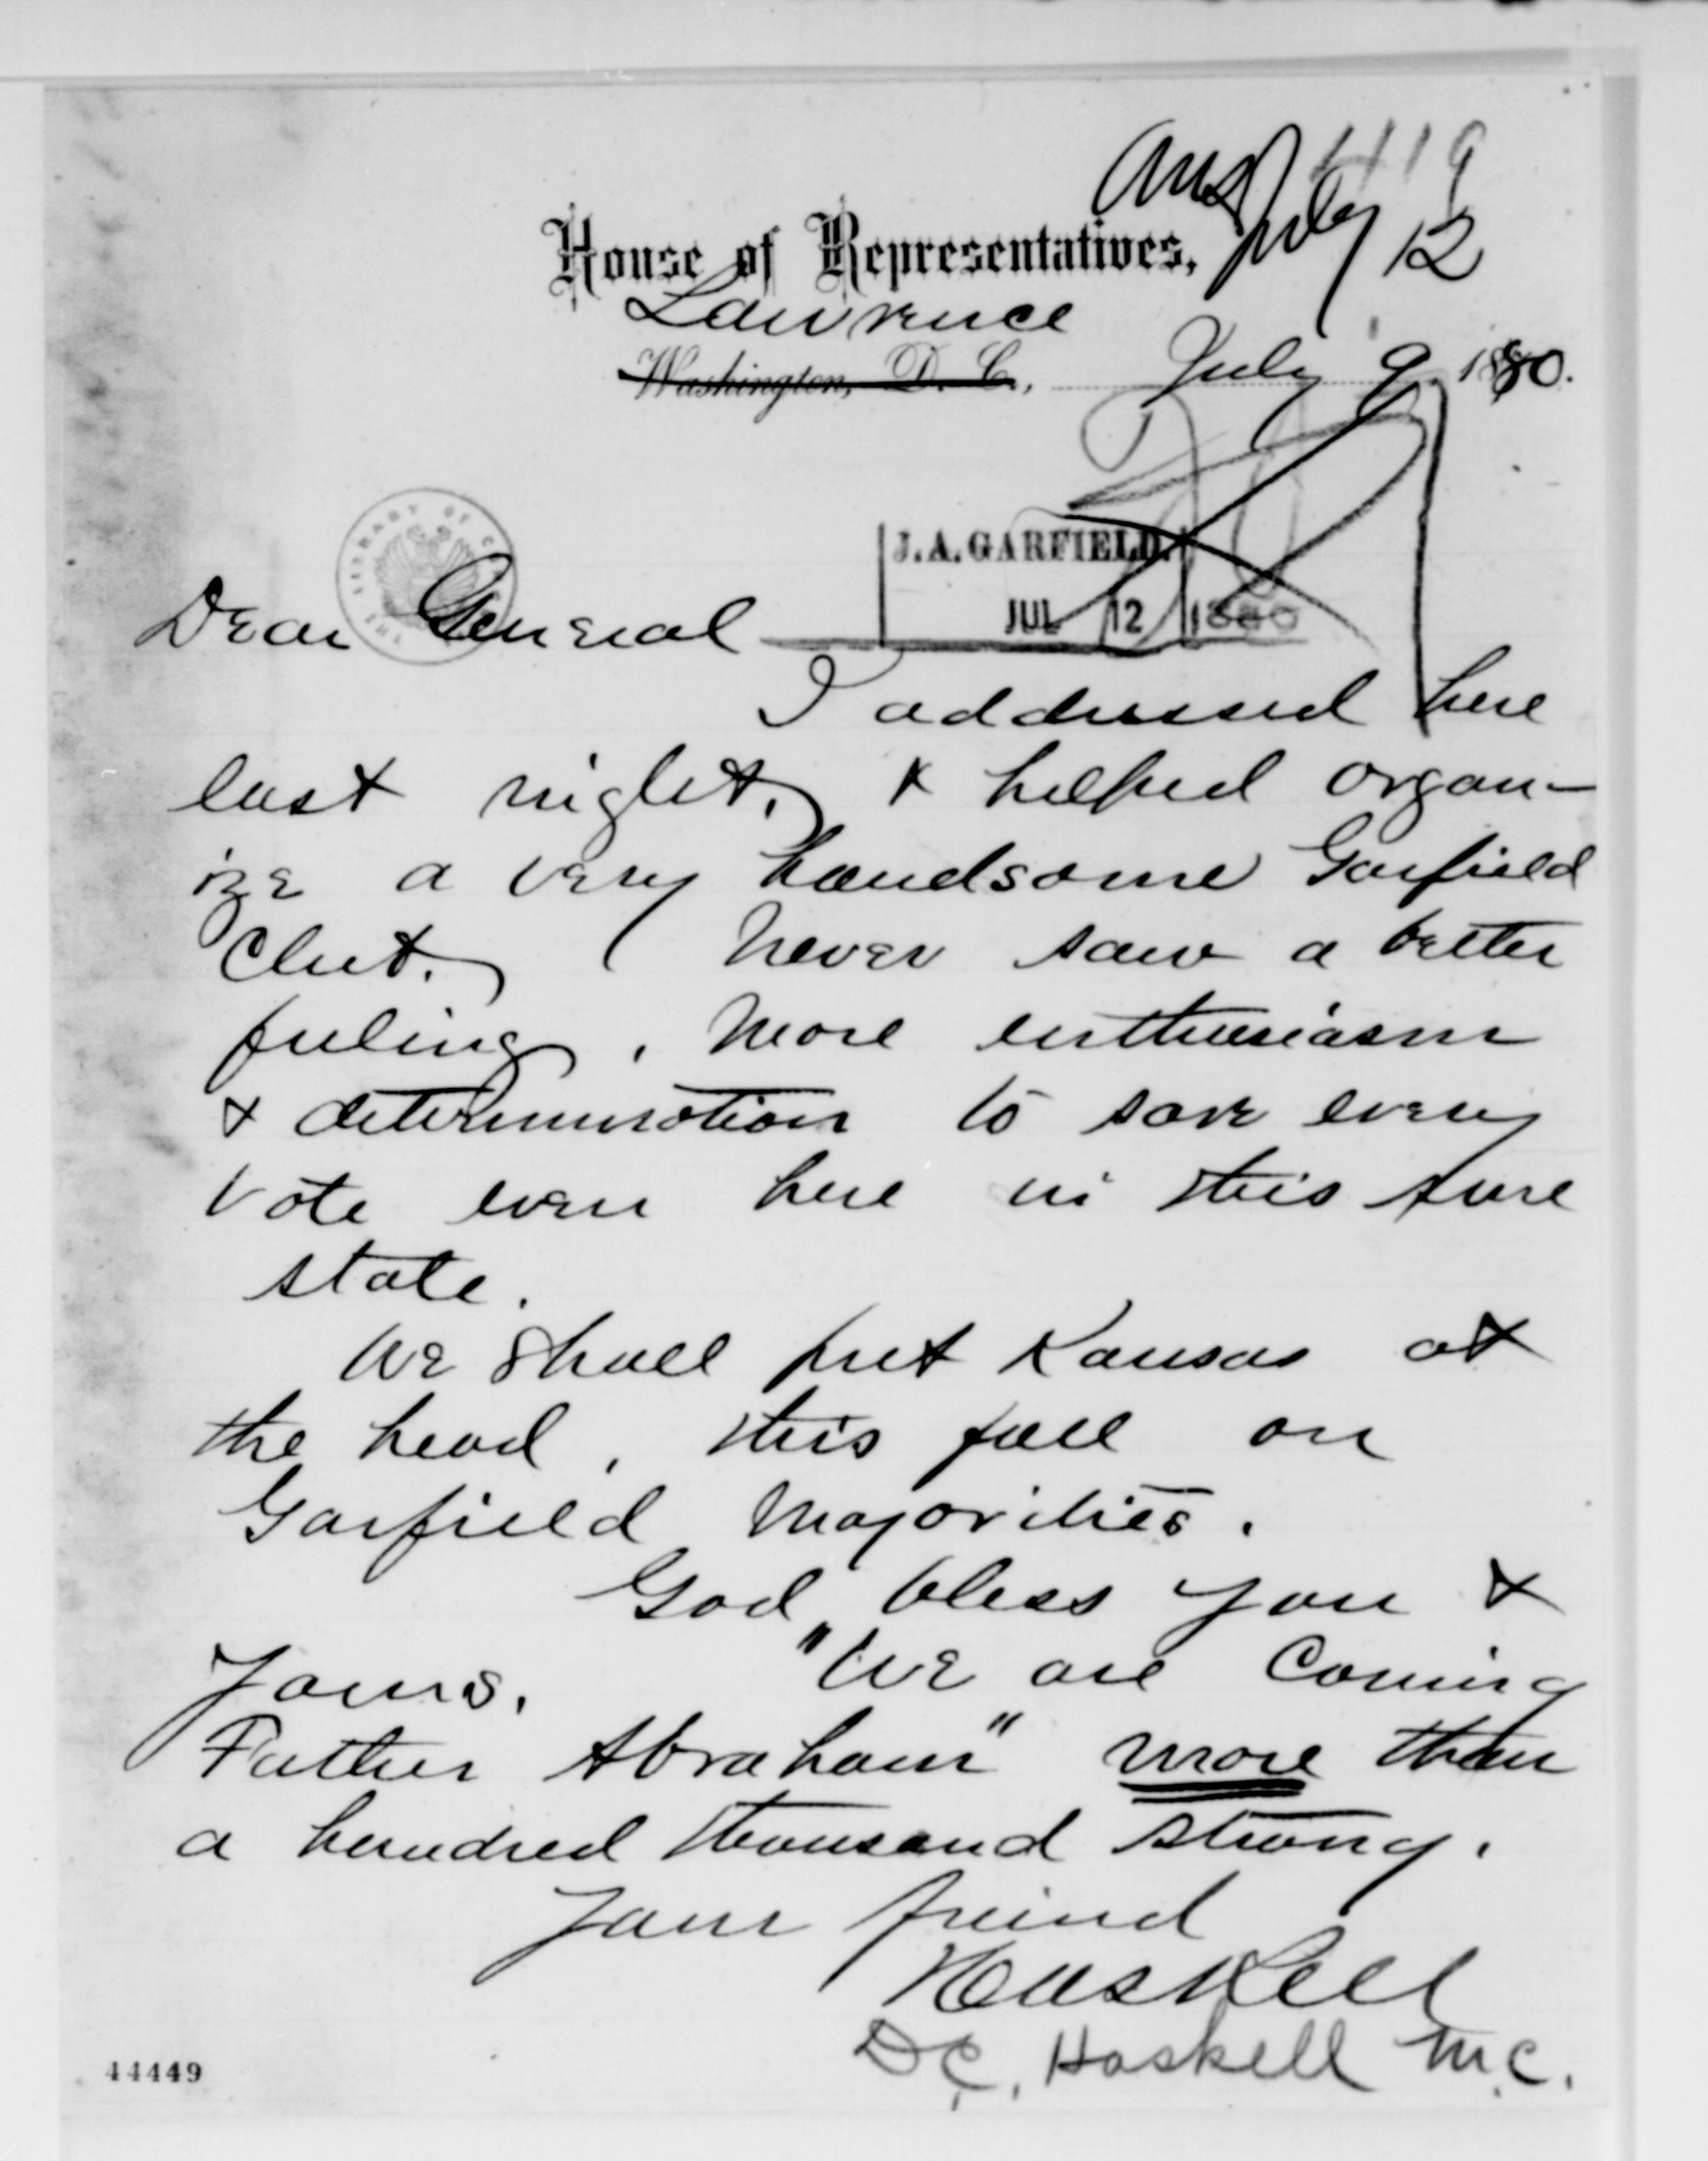 Ansd July 12
1119
House of Representatives,
Lawrence
Washington, D. C., July 9, 1880.
THE LIBRARY OF
J. A. GARFIELD.
JUL 12 1880
Dear General
I addressed here
last night, & helped organ-
ize a very handsome Garfield
Club. I never saw a better
feeling, more enthusiasm
& determination to save every
vote even here in this sure
state.
We shall put Kansas at
the head, this fall on
Garfield majorities.
God bless you &
Yours. "We are coming
Father Abraham" more than
a hundred thousand strong.
Your friend
Haskell
D.C. Haskell M.C.
44449